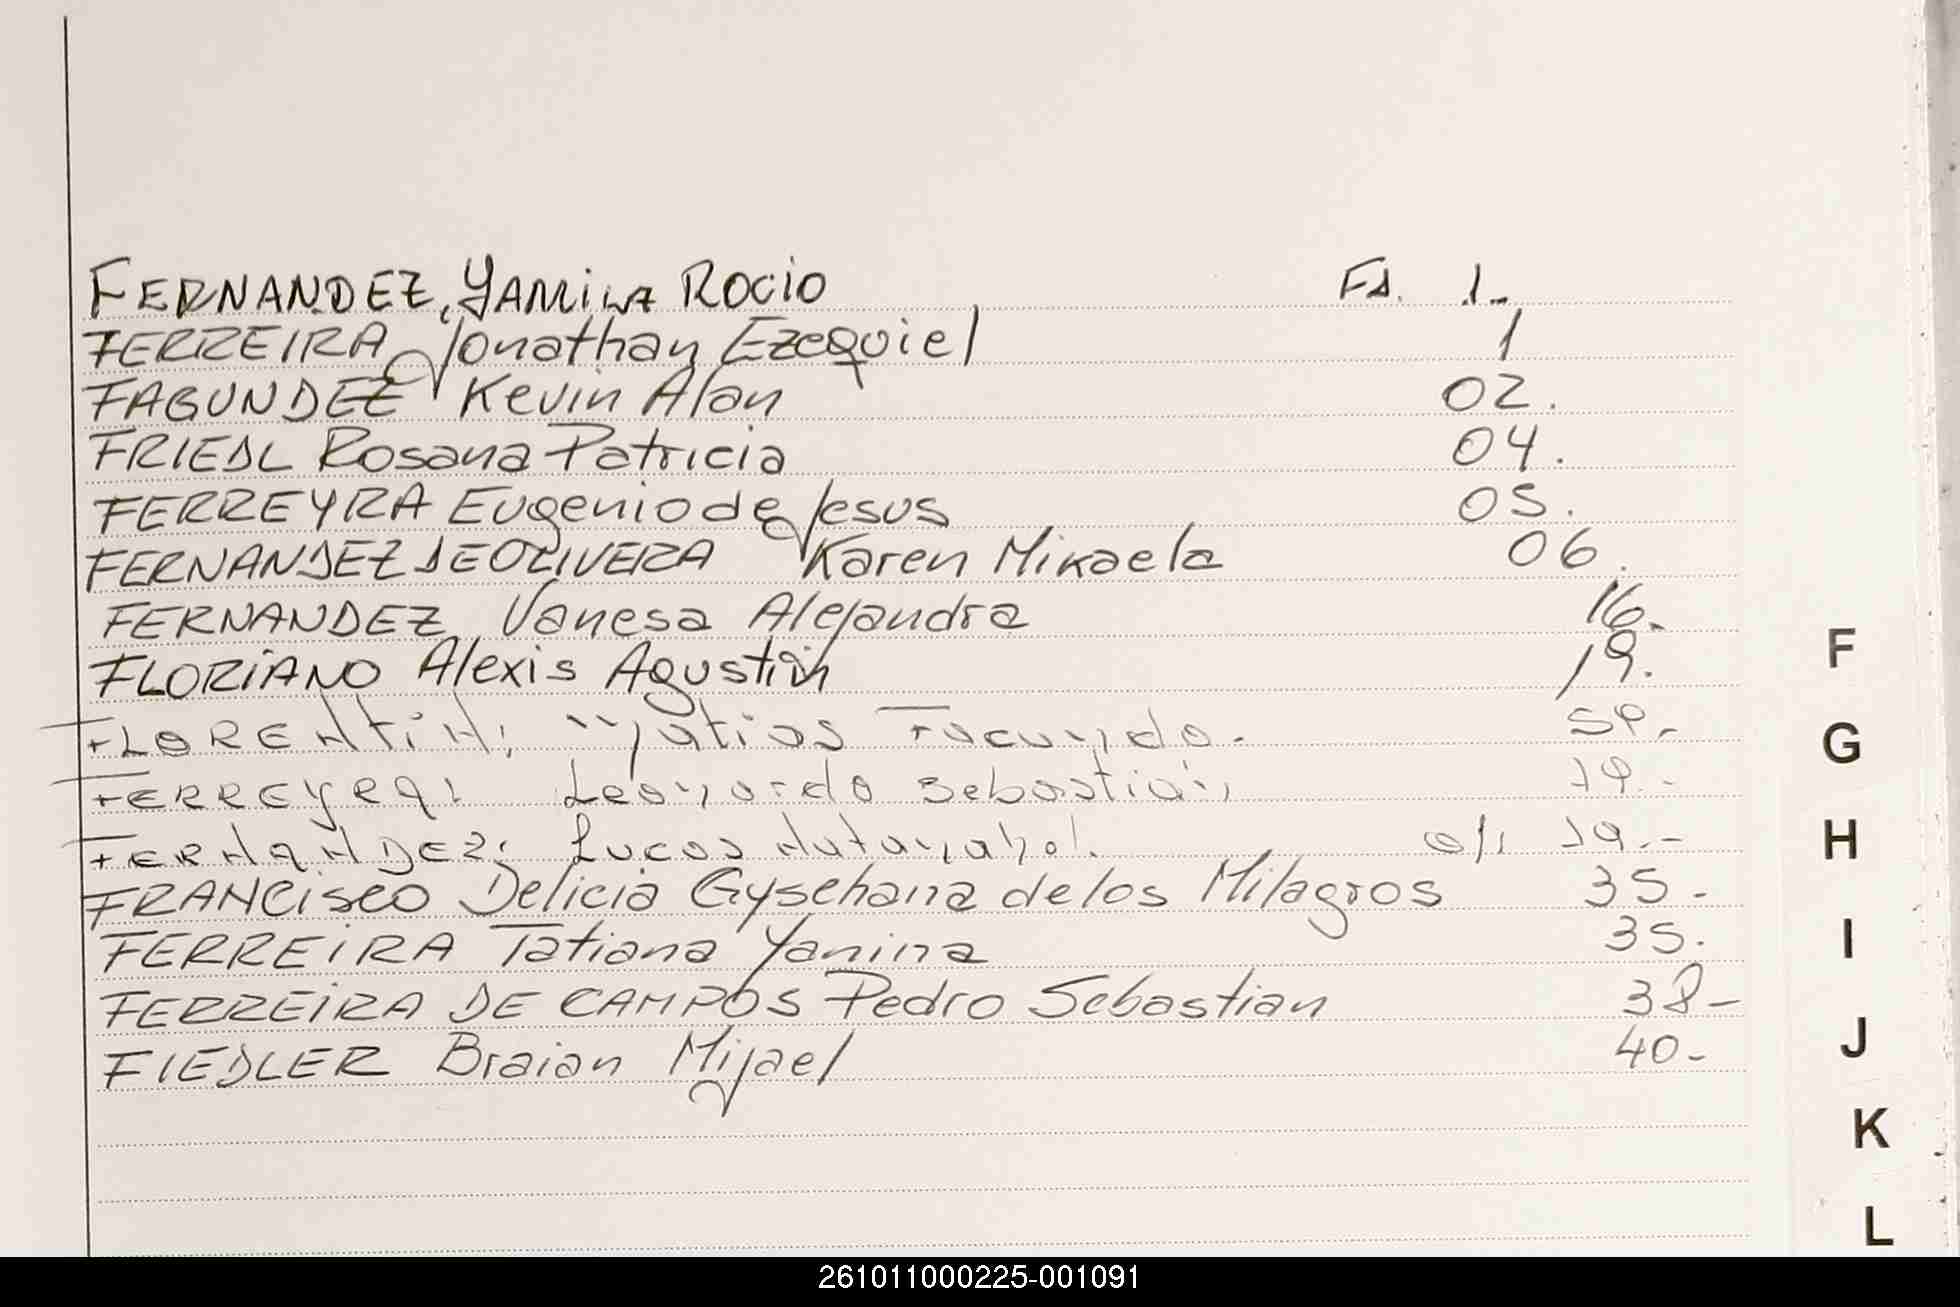 FERNANDEZ, YAMILA ROCIO Fs. 1.
FERREIRA Jonathan Ezequiel 1
FAGUNDEZ Kevin Alan 02.
FRIEDL Rosana Patricia 04.
FERREYRA Eugenio de Jesus 05.
FERNANDEZ DE OLIVERA Karen Mikaela 06.
FERNANDEZ Vanesa Alejandra 16.
FLORIANO Alexis Agustin 19.
FLORENTIN; Matias Facundo.
FERREYRA; Leonardo Sebastián 19.-
FERNANDEZ; Lucas Natanahel. 19.-
FRANCISCO Delicia Gysehana de los Milagros 35-
FERREIRA Tatiana Yanina 35.
FERREIRA DE CAMPOS Pedro Sebastian 38-
FIEDLER Braian Mijael 40-
F
G
H
I
J
K
L
261011000225-001091